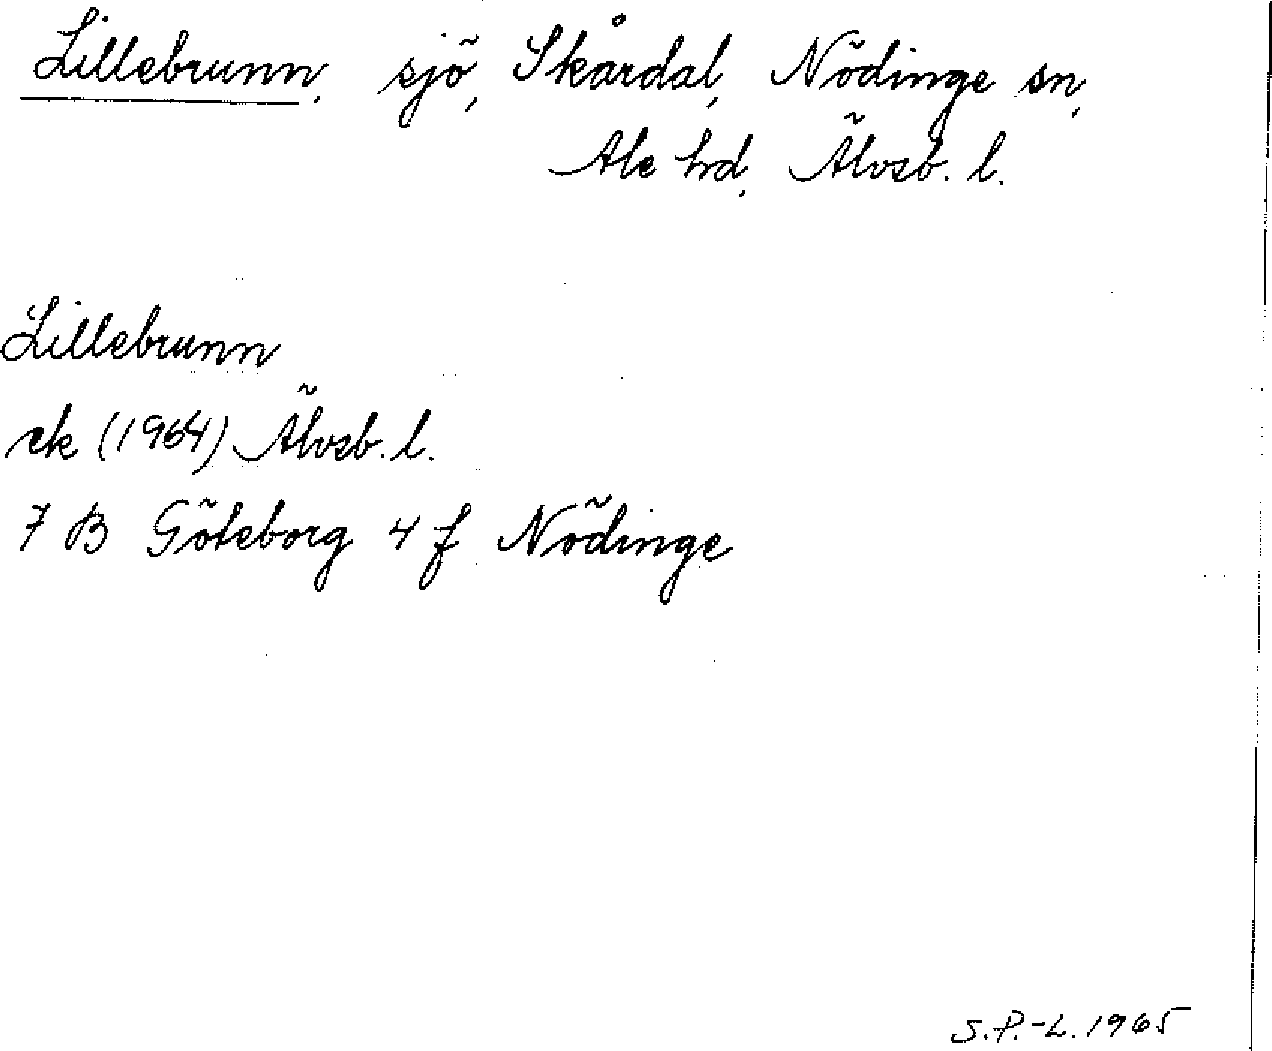 Lillebrunn, sjö, Skårdal, Nödinge sn,
Ale hd, Älvsb. l.
Lillebrunn
ek (1964) Älvsb. l.
7 B Göteborg 4 f Nödinge
S.P.-L. 1965